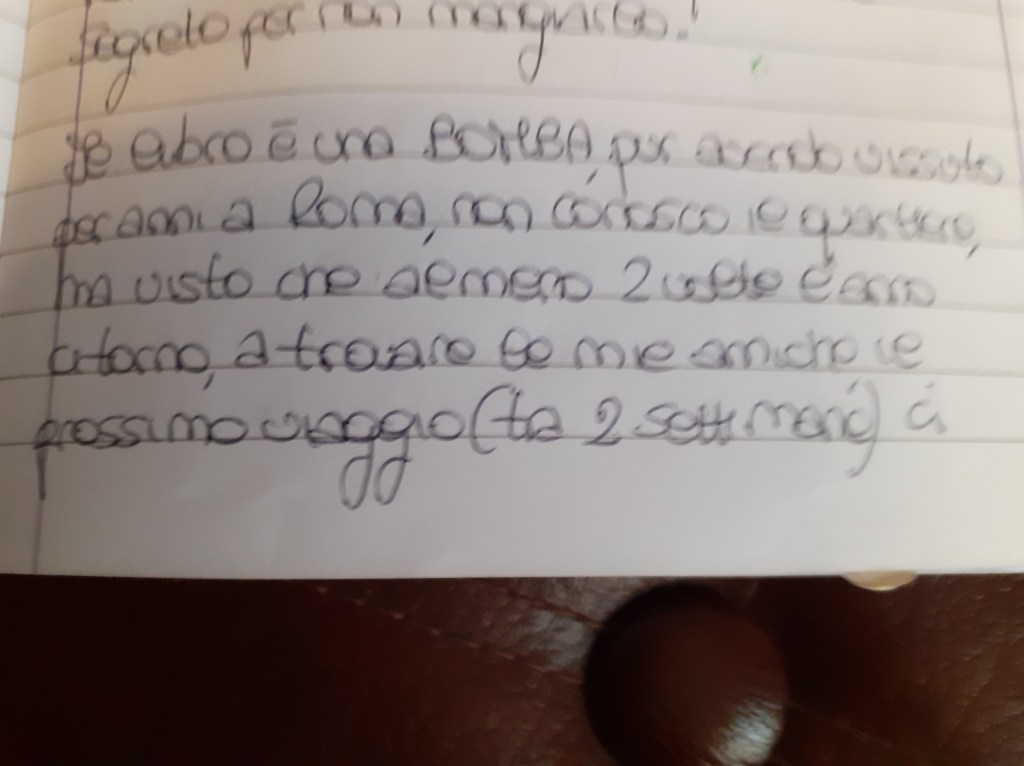 segreto per non mangiarlo!
Il libro è una BOMBA, pur avendo vissuto
per anni a Roma, non conosco il quartiere,
ma visto che almeno 2 volte l'anno
ritorno, a trovare le mie amiche il
prossimo viaggio (tra 2 settimane) ci